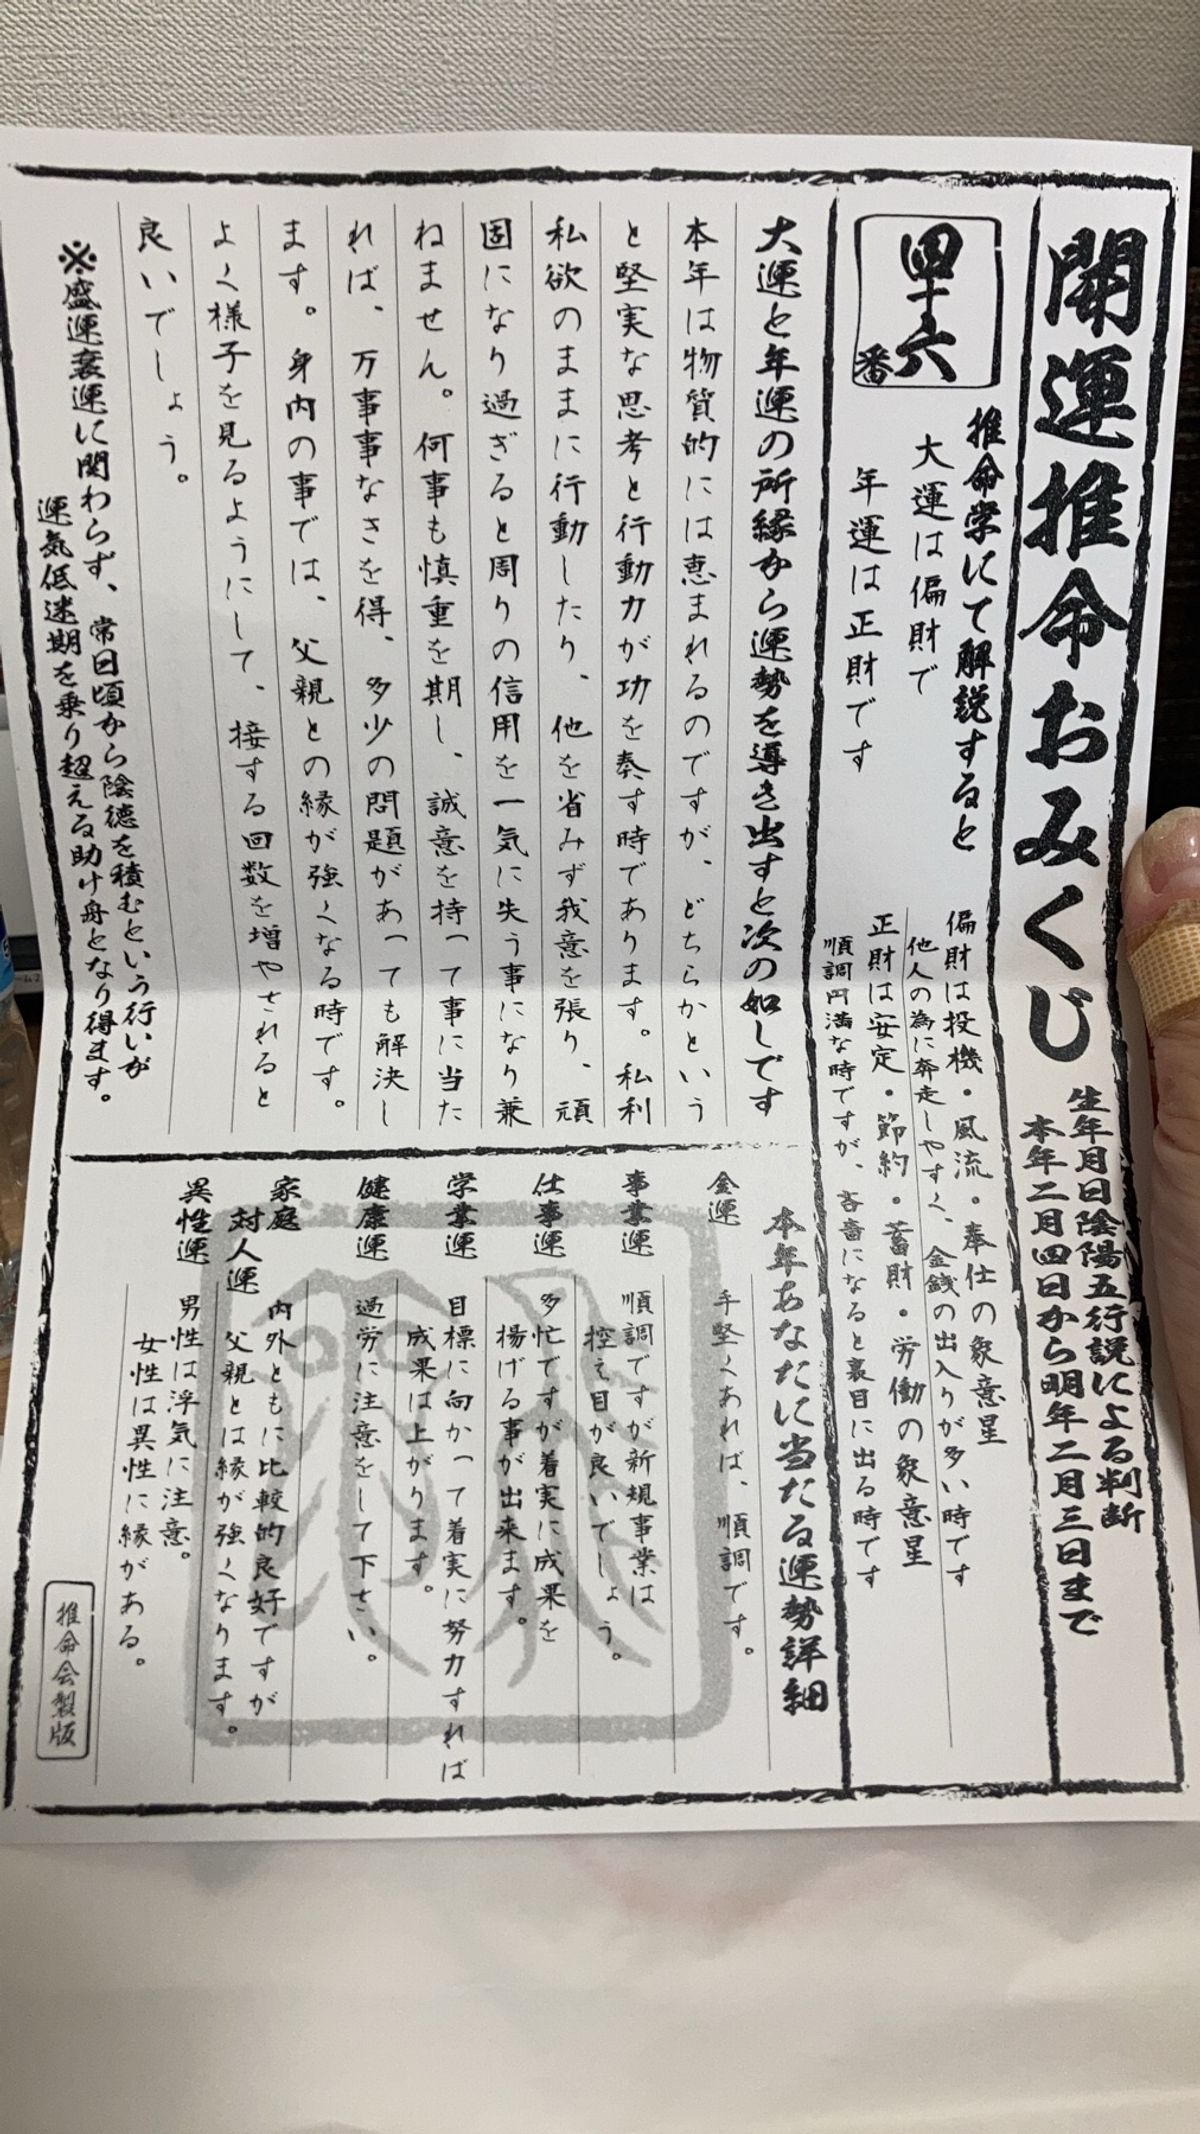 開運推命おみくじ
生年月日陰陽五行説による判断
本年二月四日から明年二月三日まで
四十六番
推命学にて解説すると
大運は偏財で
年運は正財です
偏財は投機・風流・奉仕の象意星
他人の為に奔走しやすく、金銭の出入りが多い時です
正財は安定・節約・蓄財・労働の象意星
順調円満な時ですが、吝嗇になると裏目に出る時です
大運と年運の所縁から運勢を導き出すと次の如しです
本年は物質的には恵まれるのですが、どちらかという
と堅実な思考と行動力が功を奏す時であります。私利
私欲のままに行動したり、他を省みず我意を張り、頑
固になり過ぎると周りの信用を一気に失う事になり兼
ねません。何事も慎重を期し、誠意を持って事に当た
れば、万事事なきを得、多少の問題があっても解決し
ます。身内の事では、父親との縁が強くなる時です。
よく様子を見るようにして、接する回数を増やされると
良いでしょう。
※盛運衰運に関わらず、常日頃から陰徳を積むという行いが
運気低迷期を乗り超える助け舟となり得ます。
本年あなたに当たる運勢詳細
金運
手堅くあれば、順調です。
事業運
順調ですが新規事業は
控え目が良いでしょう。
仕事運
多忙ですが着実に成果を
揚げる事が出来ます。
学業運
目標に向かって着実に努力すれば
成果は上がります。
健康運
過労に注意をして下さい。
家庭
対人運
内外ともに比較的良好ですが
父親とは縁が強くなります。
異性運
男性は浮気に注意。
女性は異性に縁がある。
推命会製版